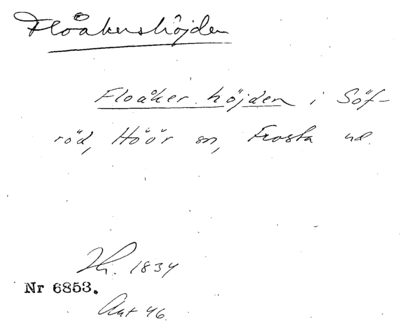 Floåkershöjden
Floåker höjden i Söf-
röd, Höör sn, Frosta hd.
1834
Nr 6853.
46